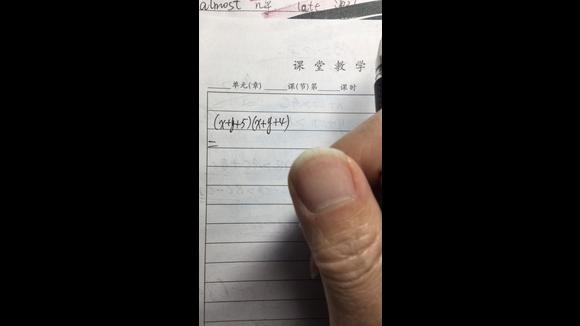 almost late
课堂教学
单元(章) 课(节)第 课时
(x+y+5)(x+y+4)
=